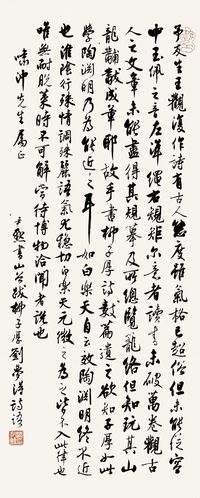 予友生王觀復作詩有古人態度雖氣格已超俗但未能從容
中玉佩之音左準繩右規矩尔意者讀書未破萬卷觀古
人之文章未能盡得其規摹及所總覽籠絡但知玩其山
龍黼黻成章耶故手書柳子厚詩數篇遺之欲知子厚如此
學陶淵明乃為能近之耳如白樂天自云效陶淵明終不近
也淮陰行殊情調殊麗語氣尤穩切白樂天元微之為之皆不入此律也
唯無耐脫萊時不可解當待博物洽聞者說也
嘯沖先生屬正
尹默書山谷跋柳子厚劉夢得詩語